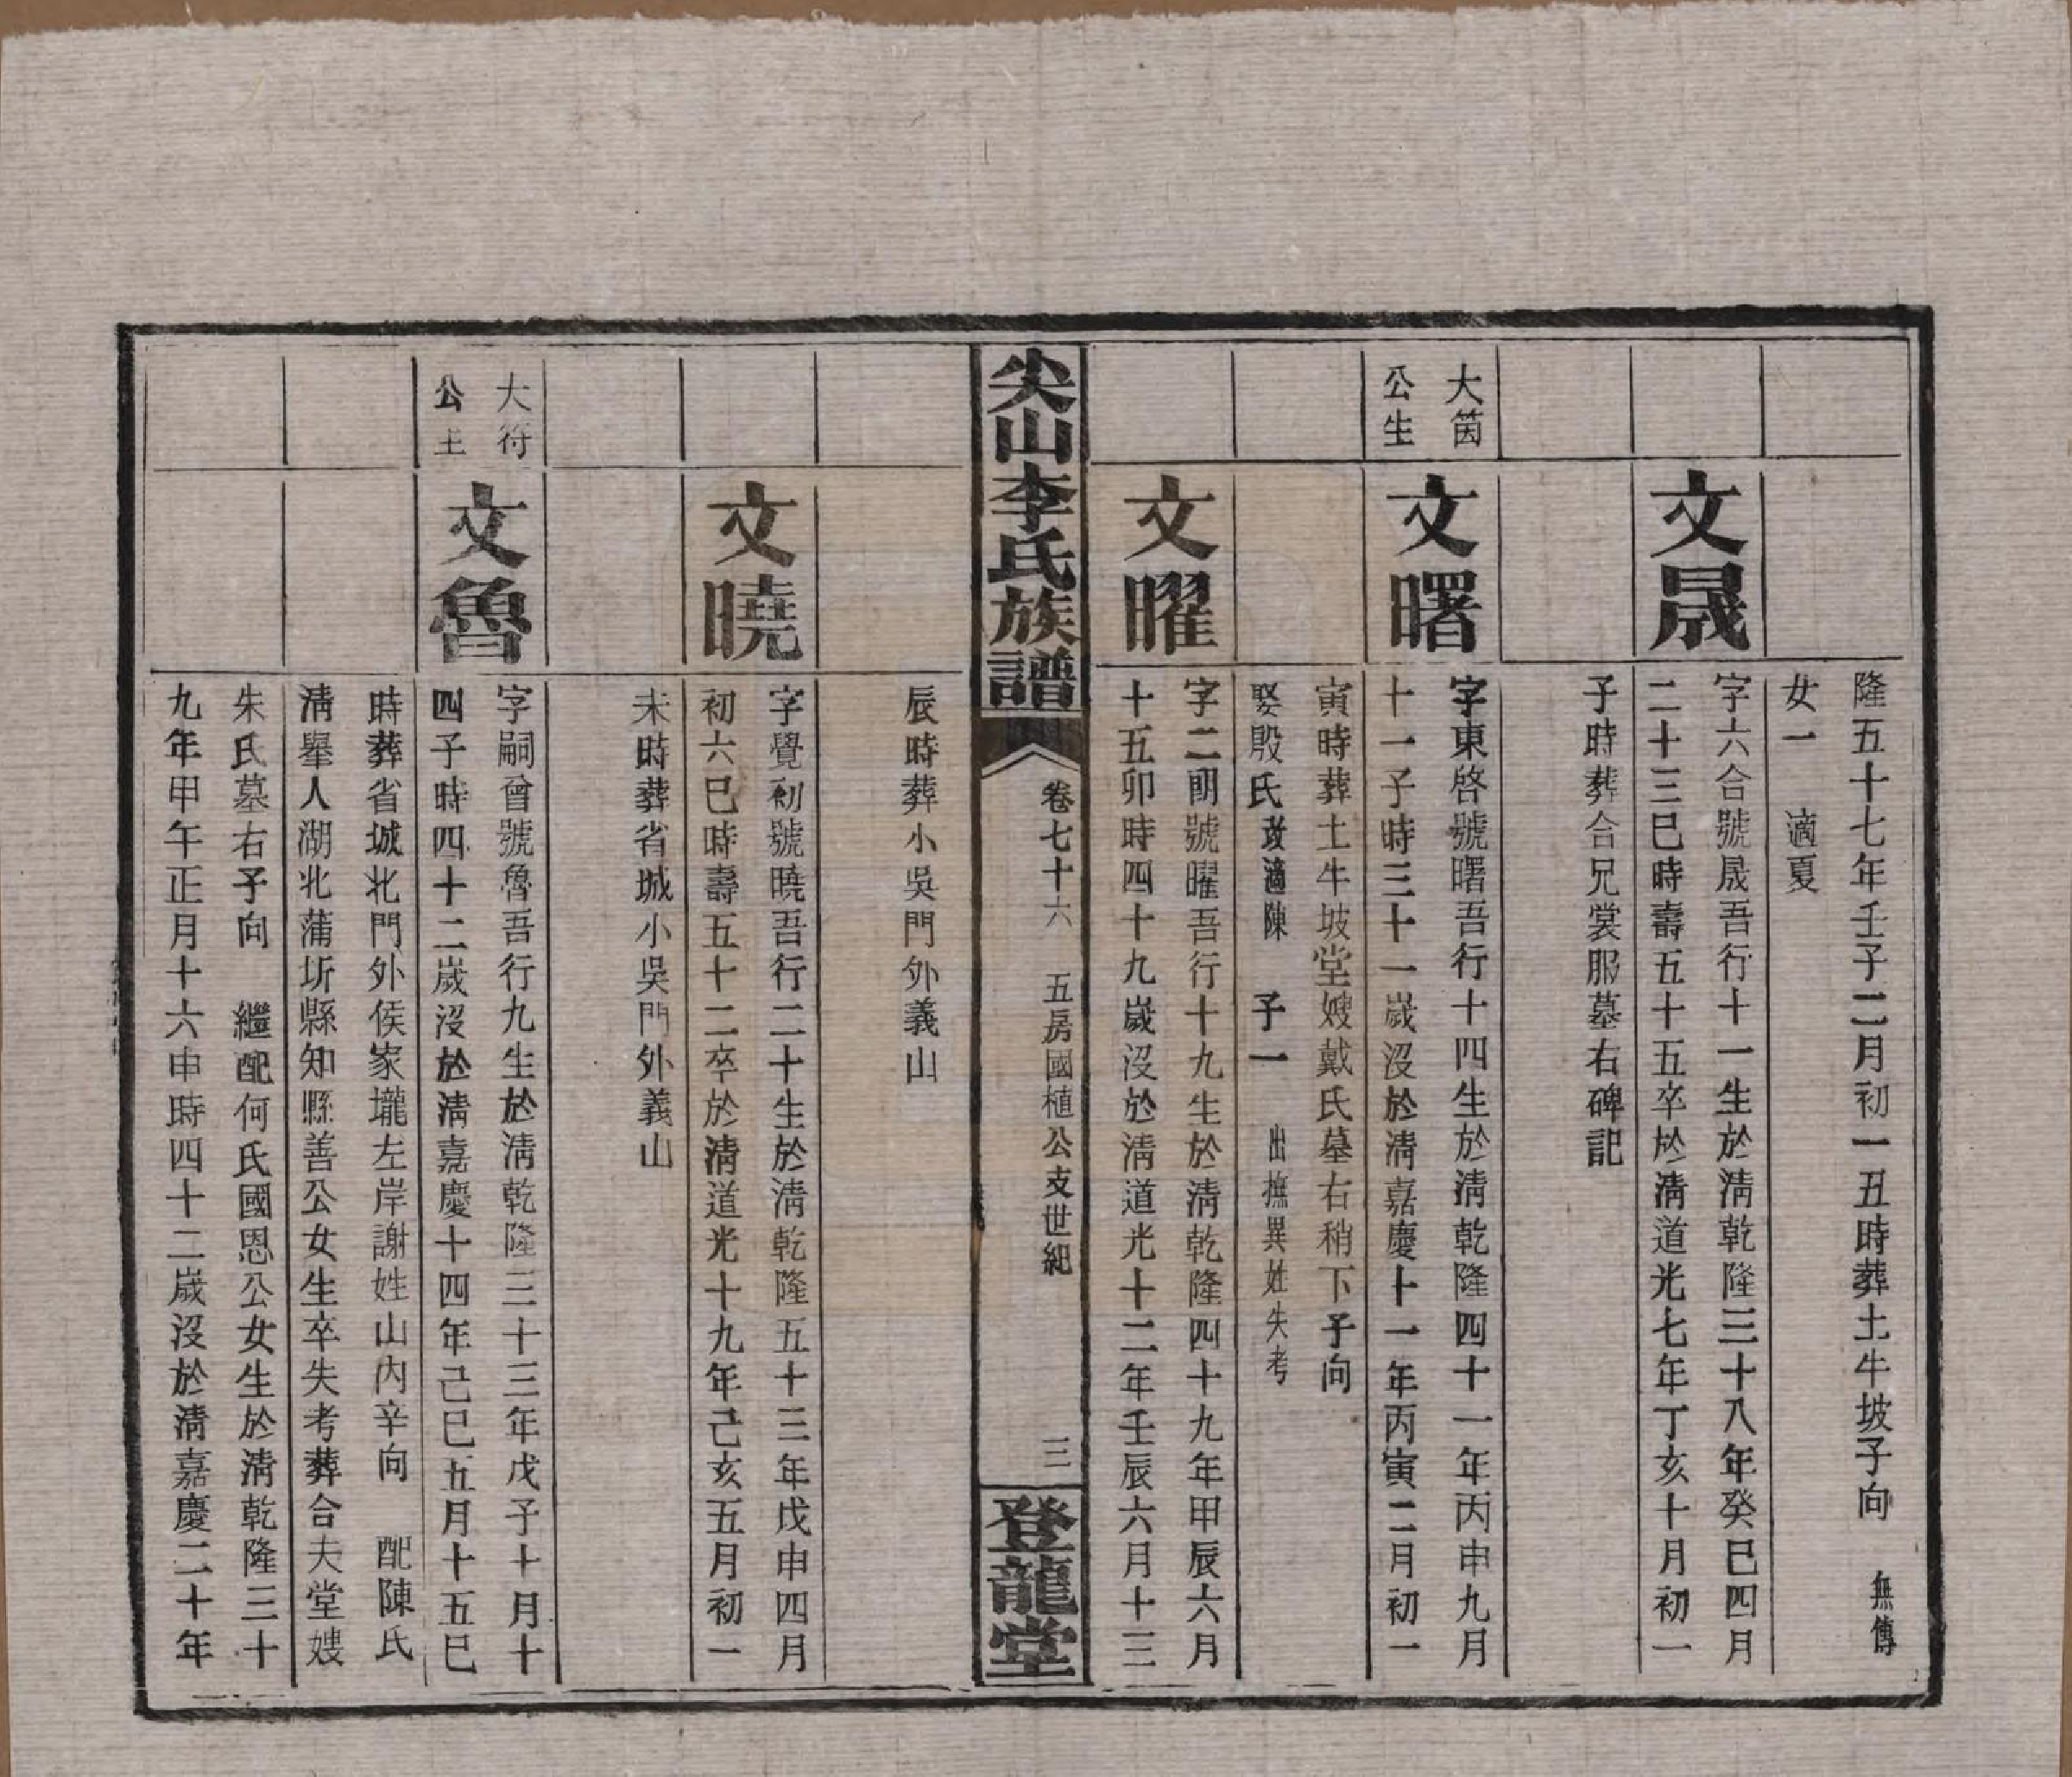 隆五十七年壬子二月初一丑時葬土牛坡子向　無傳
女一　適夏
文晟
字六合號晟吾行十一生於淸乾隆三十八年癸巳四月
二十三巳時壽五十五卒於淸道光七年丁亥十月初一
子時葬合兄裳服墓右碑記
大茵
公生
文曙
字東啓號曙吾行十四生於淸乾隆四十一年丙申九月
十一子時三十一歲沒於淸嘉慶十一年丙寅二月初一
寅時葬土牛坡堂嫂戴氏墓右稍下子向
娶殷氏改適陳　子一　出撫異姓失考
文曜
字二明號曜吾行十九生於淸乾隆四十九年甲辰六月
十五卯時四十九歲沒於淸道光十二年壬辰六月十三
尖山李氏族譜
卷七十六　五房國植公支世紀
三
登龍堂
辰時葬小吳門外義山
文曉
字覺初號曉吾行二十生於淸乾隆五十三年戊申四月
初六巳時壽五十二卒於淸道光十九年己亥五月初一
未時葬省城小吳門外義山
大符
公主
文魯
字嗣曾號魯吾行九生於淸乾隆三十三年戊子十月十
四子時四十二歲沒於淸嘉慶十四年己巳五月十五巳
時葬省城北門外侯家壠左岸謝姓山內辛向　配陳氏
淸舉人湖北蒲圻縣知縣善公女生卒失考葬合夫堂嫂
朱氏墓右子向　繼配何氏國恩公女生於淸乾隆三十
九年甲午正月十六申時四十二歲沒於淸嘉慶二十年